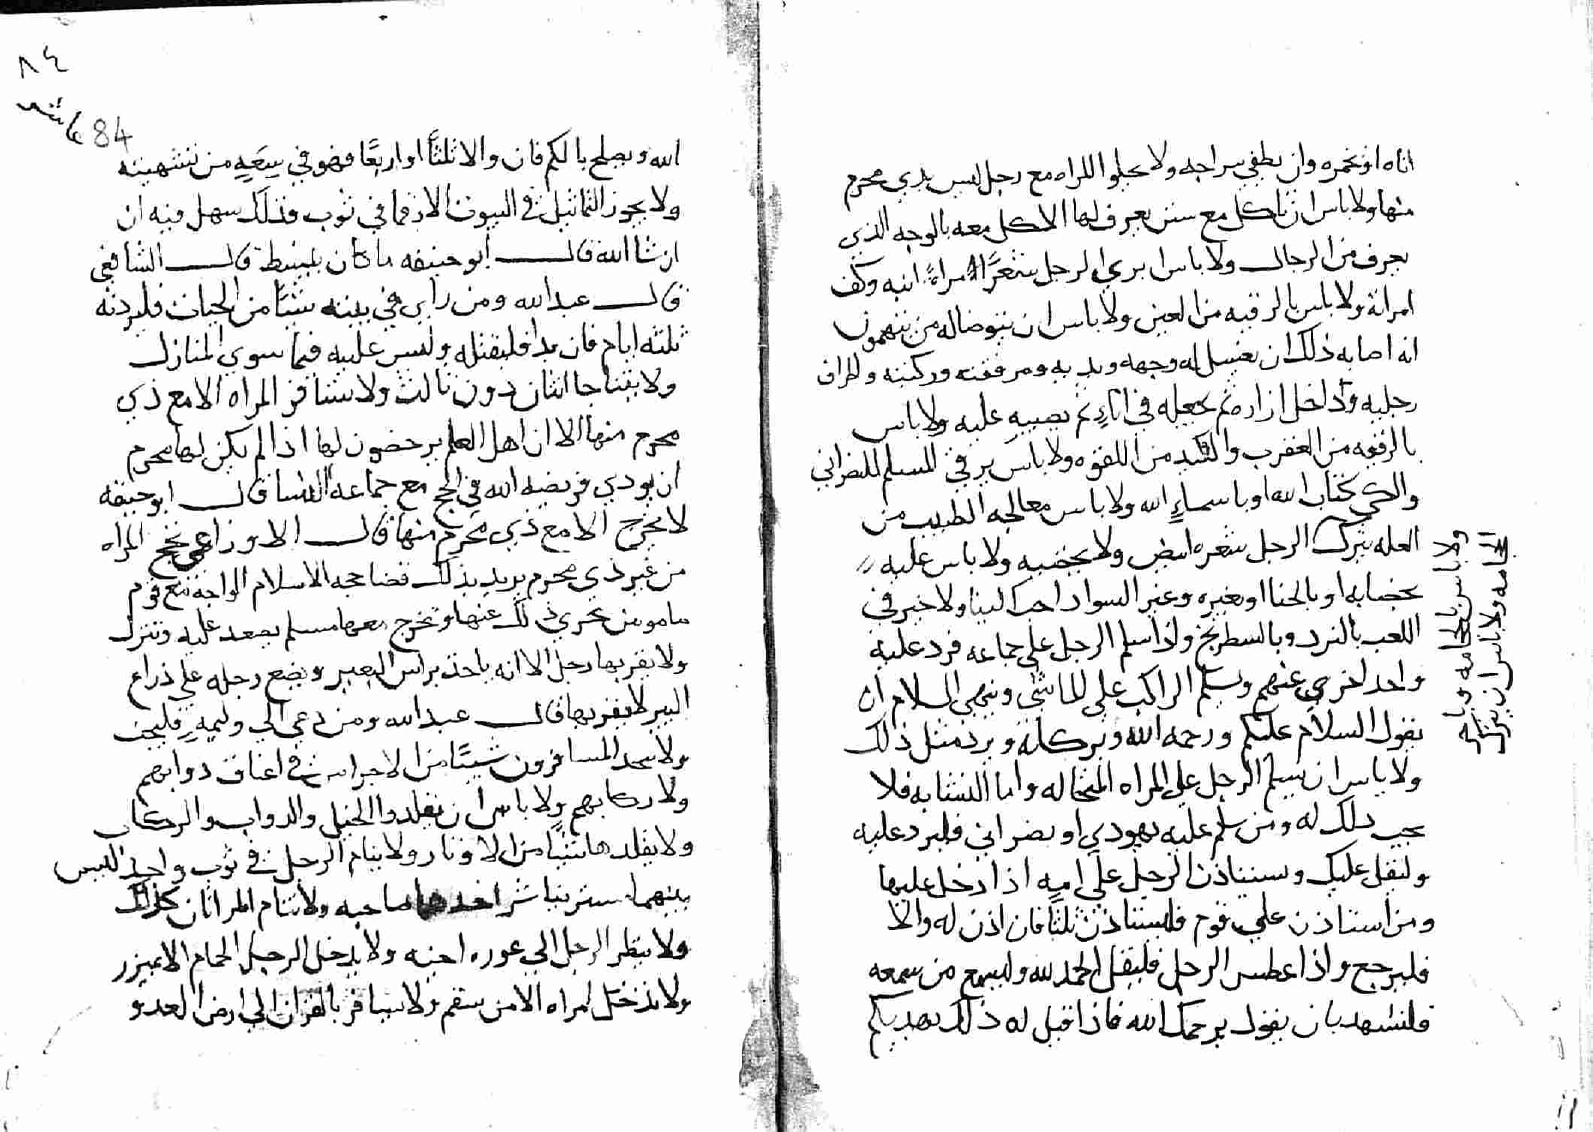 اناه او يخمره وان يطفي سراجه ولا يخلوا المراه مع رجل ليس بذي محرم
منها ولا باس ان تاكل مع من يعرف لها الاكل معه بالوجه الذي
يعرف من الرجال ولا باس ان يري الرجل شعر امراة ابنه وكف
امراته ولا باس بالرقيه من العين ولا باس ان يتوضا له من يتهمون
انه اصابه ذلك ان يغسل له وجهه ويديه ومرفقيه وركبتيه واطراف
رجليه وداخل ازاره ثم يجعله في اناء ثم يصبه عليه ولا باس
بالرقيه من العقرب و من اللقوه ولا باس يرقي المسلم للنصراني
والكي كتاب الله او باسماء الله ولا باس معالجه الطبيب من
العله بترك الرجل شعره ابيض ولا يخضبه ولا باس عليه
بخضابه او بالحنا او بغيره وغير السواد احب الينا ولا خير في
اللعب بالنرد وبالسطرنج واذا سلم الرجل علي جماعه فرد عليه
واحد اجزي عنهم ويسلم الراكب علي الماشي وينتهي السلام ان
يقول السلام عليكم ورحمه الله وبركاته ويرد مثل ذلك
ولا باس ان يسلم الرجل علي المراه المتجاله واما الشابه فلا
يجب ذلك له ومن سلم عليه يهودي او نصراني فليرد عليه
وليقل عليك ويستاذن الرجل علي امه اذا دخل عليها
ومن استاذن علي قوم فليستاذن ثلثا فان اذن له والا
فليرجع واذا عطس الرجل فليقل الحمد لله وليسمع من سمعه
فليشهد بان يقول يرحمك الله فاذا قيل له ذلك يهديكم
ولا باس بالحجامه
الحجامه ولا باس ان يترك
٨٤
عاشر 84
الله ويصلح بالكم فان والا ثلثا او اربعا فهو في سعه من تشميته
ولا يجوز التماثيل في البيوت الا رقما في ثوب فذلك سهل فيه ان
ان شا الله قال ابو حنيفه ما كان يبسط قال الشافعي
قال عبد الله ومن راي في بيته شيئا من الحيات فليوذنه
ثلثه ايام فان بدا فليقتله وليس عليه فيما سوي المنازل
ولا يتناجا اثنان دون ثالث ولا تسافر المراه الا مع ذي
محرم منها الا ان اهل العلم يرخصون لها اذا لم يكن لها محرم
ان تودي فريضه الله في الحج مع جماعه النسا قال ابو حنيفه
لا تخرج الا مع ذي محرم منها قال الاوزاعي تحج المراه
من غير ذي محرم يريد بذلك قضا حجه الاسلام الواجبه مع قوم
مامونين يجزي ذلك عنها وتخرج معها مسلم يصعد عليه وتنزل
ولا يقربها رجل الا انه ياخذ براس البعير ويضع رجله علي ذراع
البعير لا يقربها قال عبد الله ومن دعي الي وليمه فليجب
ولا يتخذ المسافرون شيئا من الاجراس في اعناق دوابهم
ولا ركابهم ولا باس ان يقلدوا الخيل والدواب والركاب
ولا يقلدها شيئا من الاوتار ولا ينام الرجل في ثوب واحد ليس
بينهما ستر صاحبه ولا تنام المراتان كذلك
ولا ينظر الرجل الي عوره اخيه ولا يدخل الرجل الحمام الا بميزر
ولا تدخل امراه الا من سقم ولا يسافر بالقران الي ارض العدو